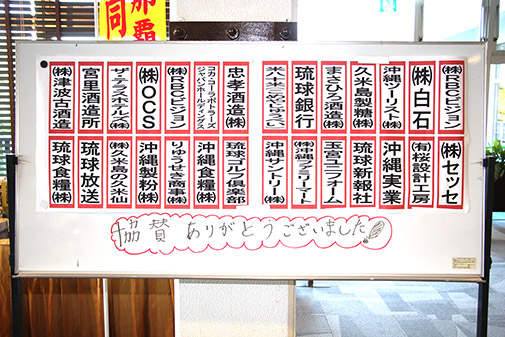 那覇
同
㈱RBCビジョン
㈱白石
沖縄ツーリスト㈱
久米島製糖㈱
まさひろ酒造㈱
琉球銀行
忠孝酒造㈱
コカ・コーラボトラーズ
ジャパンホールディングス
㈱RBCビジョン
㈱OCS
ザ・テラスホテルズ㈱
宮里酒造所
㈱津波古酒造
㈱セッセ
㈲桜設計工房
沖縄実業
琉球新報社
玉宮ユニフォーム
㈱沖縄ファミリーマート
沖縄サントリー㈱
琉球ゴルフ倶楽部
沖縄食糧㈱
りゅうせき商事㈱
沖縄製粉㈱
㈱久米島の久米仙
琉球放送
琉球食糧㈱
協賛 ありがとうございました